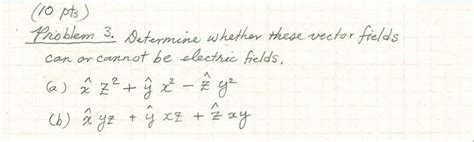 (10 pts)
Problem 3. Determine whether these vector fields
can or cannot be electric fields.
(a) x̂ z² + ŷ x² − ẑ y²
(b) x̂ yz + ŷ xz + ẑ xy